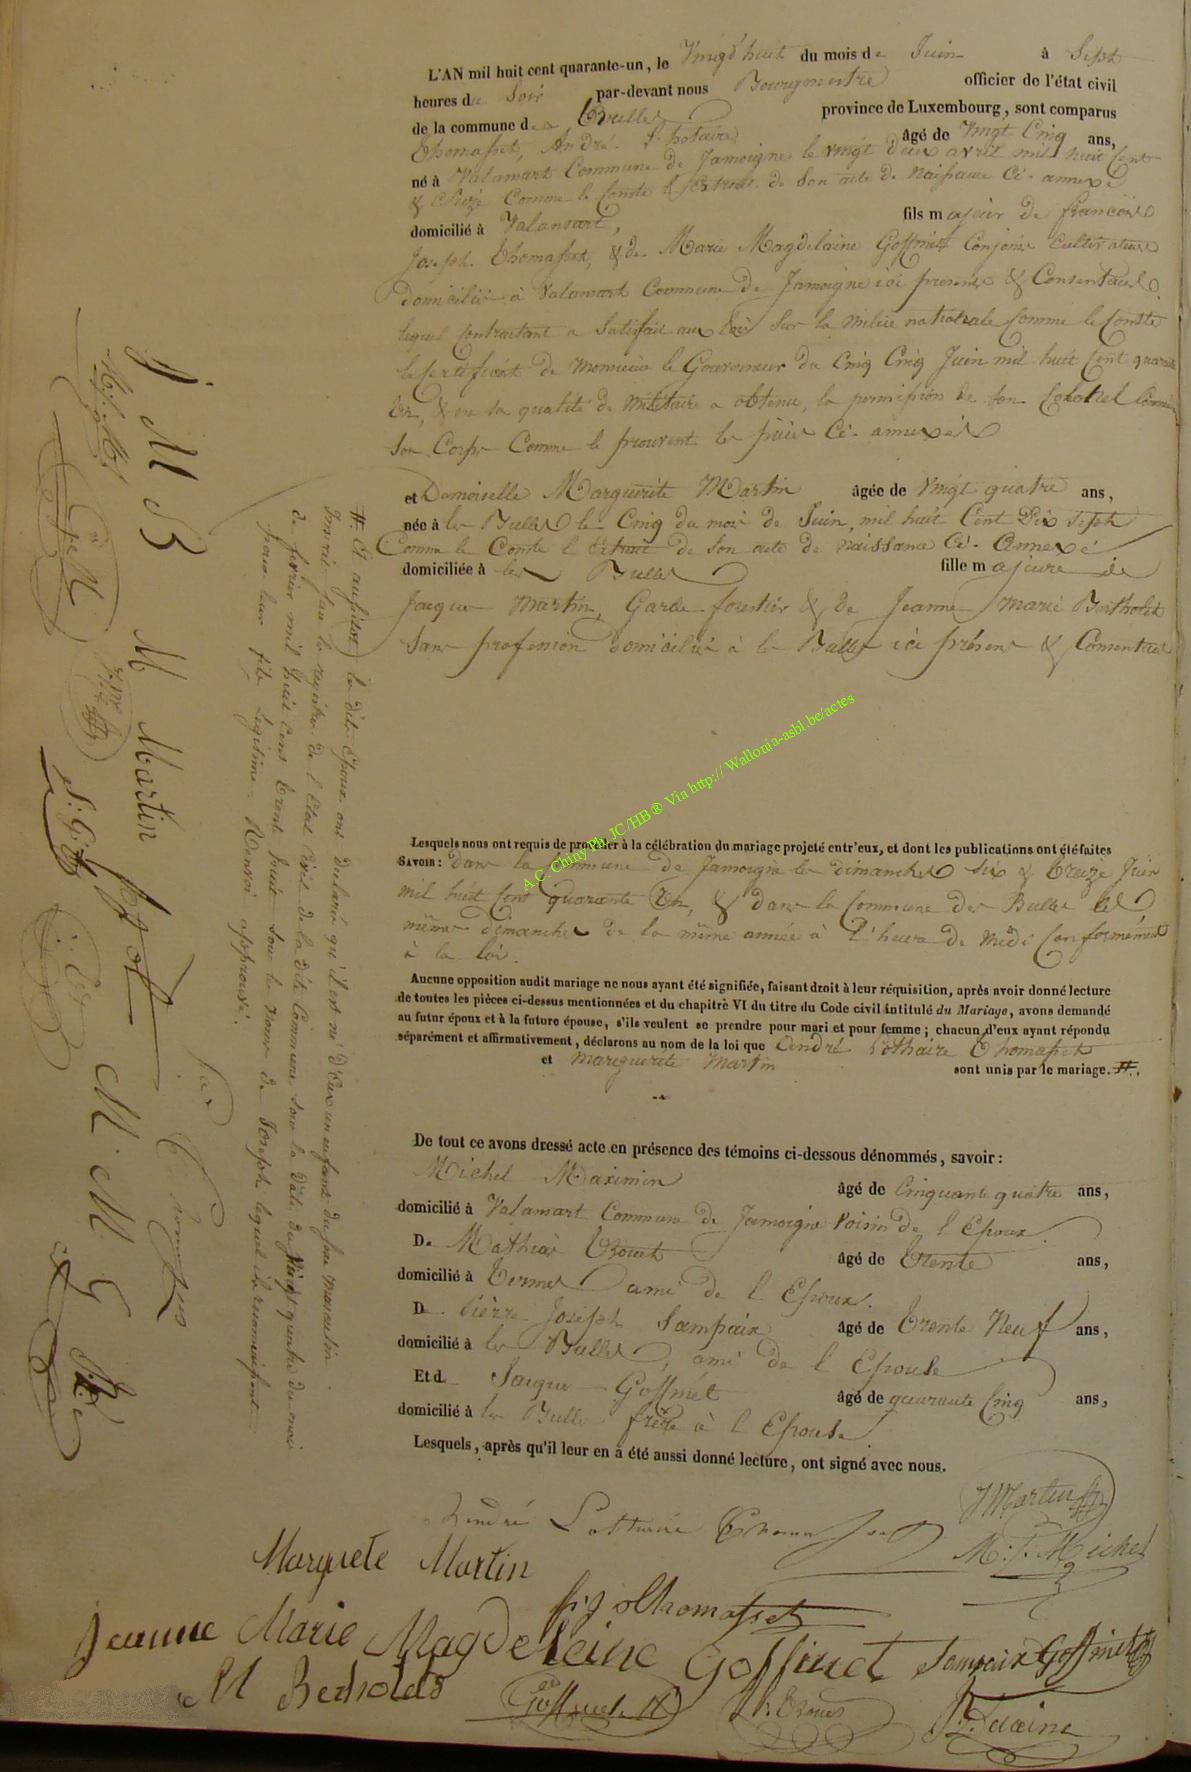 L'AN mil huit cent quarante-un, le Vingt huit du mois de Juin à Sept
heures du Soir par-devant nous Bourgmestre officier de l'état civil
de la commune des Bulles province de Luxembourg, sont comparus
Thomasset, André Lothaire âgé de Vingt Cinq ans,
né à Valansart Commune de Jamoigne le vingt deux avril mil huit Cent
& Seize Comme le Constate l'Extrait de Son acte de Naissance Ci-annexé
domicilié à Valansart, fils majeur de François
Joseph Thomasset, & de Marie Magdelaine Goffinet Conjoins Cultivateurs
domiciliés à Valansart Commune de Jamoigne ici présents & Consentants
lequel Contractant a Satisfait aux lois Sur la milice nationale Comme le Constate
le Certificat de Monsieur le Gouverneur du Cinq Juin mil huit Cent quarante
Un, & en sa qualité de Militaire a obtenu la permission de Son Colonel
Son Corps Comme le prouvent les pièces Ci-annexées
et Demoiselle Marguerite Martin âgée de Vingt quatre ans,
née à les Bulles le Cinq du mois de Juin, mil huit Cent Dix Sept
Comme le Conste l'Extrait de Son acte de Naissance Ci-Annexé
domiciliée à les Bulles fille majeure de
Jacques Martin, Garde forestier & de Jeanne Marie Bertholet
Sans profession domiciliés à les Bulles ici présens & Consentans
A.C. Chiny Ph. JC/HB ® Via http:// Wallonia-asbl.be/actes
Lesquels nous ont requis de procéder à la célébration du mariage projeté entr'eux, et dont les publications ont été faites
SAVOIR : dans la Commune de Jamoigne les dimanches Six & treize Juin
mil huit Cent quarante Un, & dans la Commune des Bulles les
mêmes dimanches de la même année à l'heure de Midi Conformément
à la loi.
Aucune opposition audit mariage ne nous ayant été signifiée, faisant droit à leur réquisition, après avoir donné lecture
de toutes les pièces ci-dessus mentionnées et du chapitre VI du titre du Code civil intitulé du Mariage, avons demandé
au futur époux et à la future épouse, s'ils veulent se prendre pour mari et pour femme ; chacun d'eux ayant répondu
séparément et affirmativement, déclarons au nom de la loi que André Lothaire Thomasset
et Marguerite Martin sont unis par le mariage. #.
De tout ce avons dressé acte en présence des témoins ci-dessous dénommés, savoir :
Michel Maximin âgé de Cinquante quatre ans,
domicilié à Valansart Commune de Jamoigne voisin de l'Epoux.
De Mathias Trouet âgé de Trente ans,
domicilié à Termes ami de l'Epoux.
De Pierre Joseph Sampaix âgé de Trente Neuf ans,
domicilié à les Bulles, ami de l'Epouse
Et de Jacques Goffinet âgé de quarante Cinq ans,
domicilié à les Bulles frère à l'Epouse
Lesquels, après qu'il leur en a été aussi donné lecture, ont signé avec nous.
André Lothaire Thomasset JMartin
M. J. Michel
Marguerite Martin
fs j thomasset
Jeanne Marie Magdeleine Goffinet Sampaix Goffinet
M Bertholet
# Et aussitôt les dits Epoux ont déclaré qu'il est né d'Eux un enfant du sexe masculin
Inscrit sur le registre de l'état civil de la dite Commune sous la date du Vingt quatre du mois
de février mil huit Cent trente huit sous le nom de Joseph lequel ils reconnaissent
pour leur fils légitime. Renvoi approuvé.
J M B M Martin